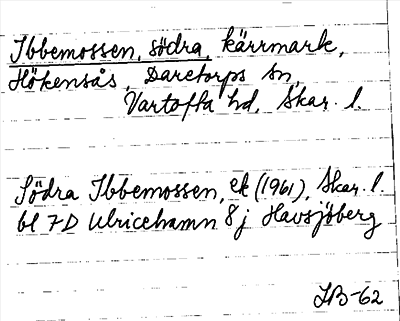 Ibbemossen, södra, kärrmark,
Hökensås, Daretorps sn,
Vartofta hd, Skar. l.
Södra Ibbemossen, ek (1961), Skar. l.
bl 7D Ulricehamn 8j Havsjöberg
IB-62